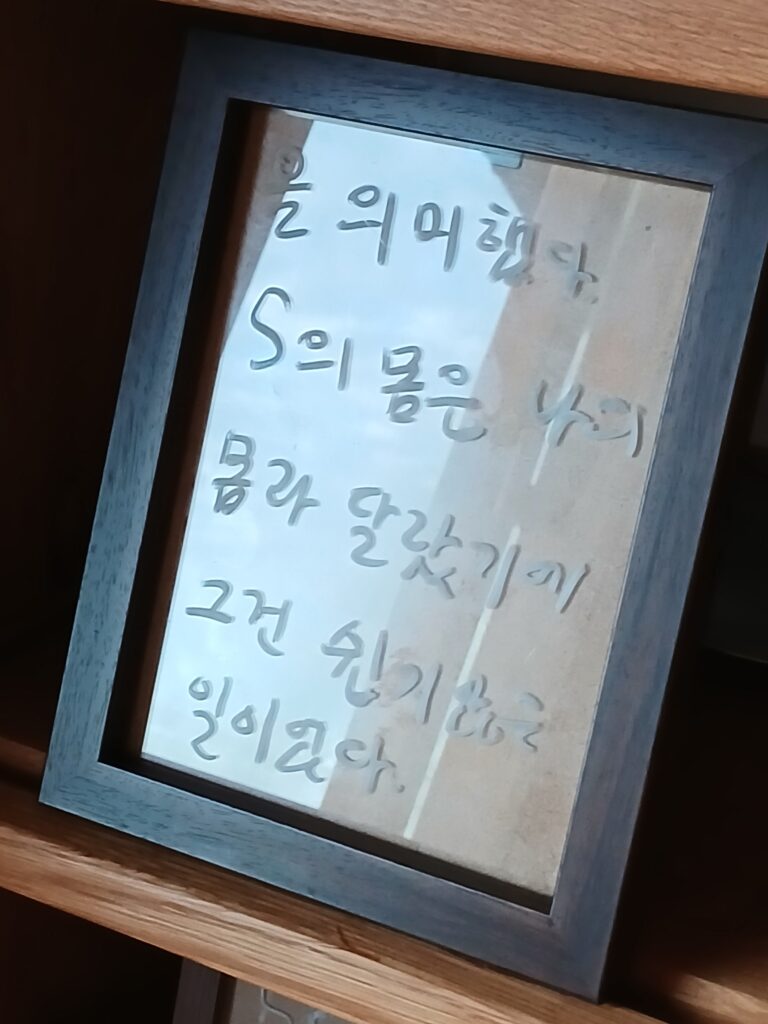 을 의미했다.
S의 몸은 나의
몸과 달랐기에
그건 쉽지않은
일이었다.